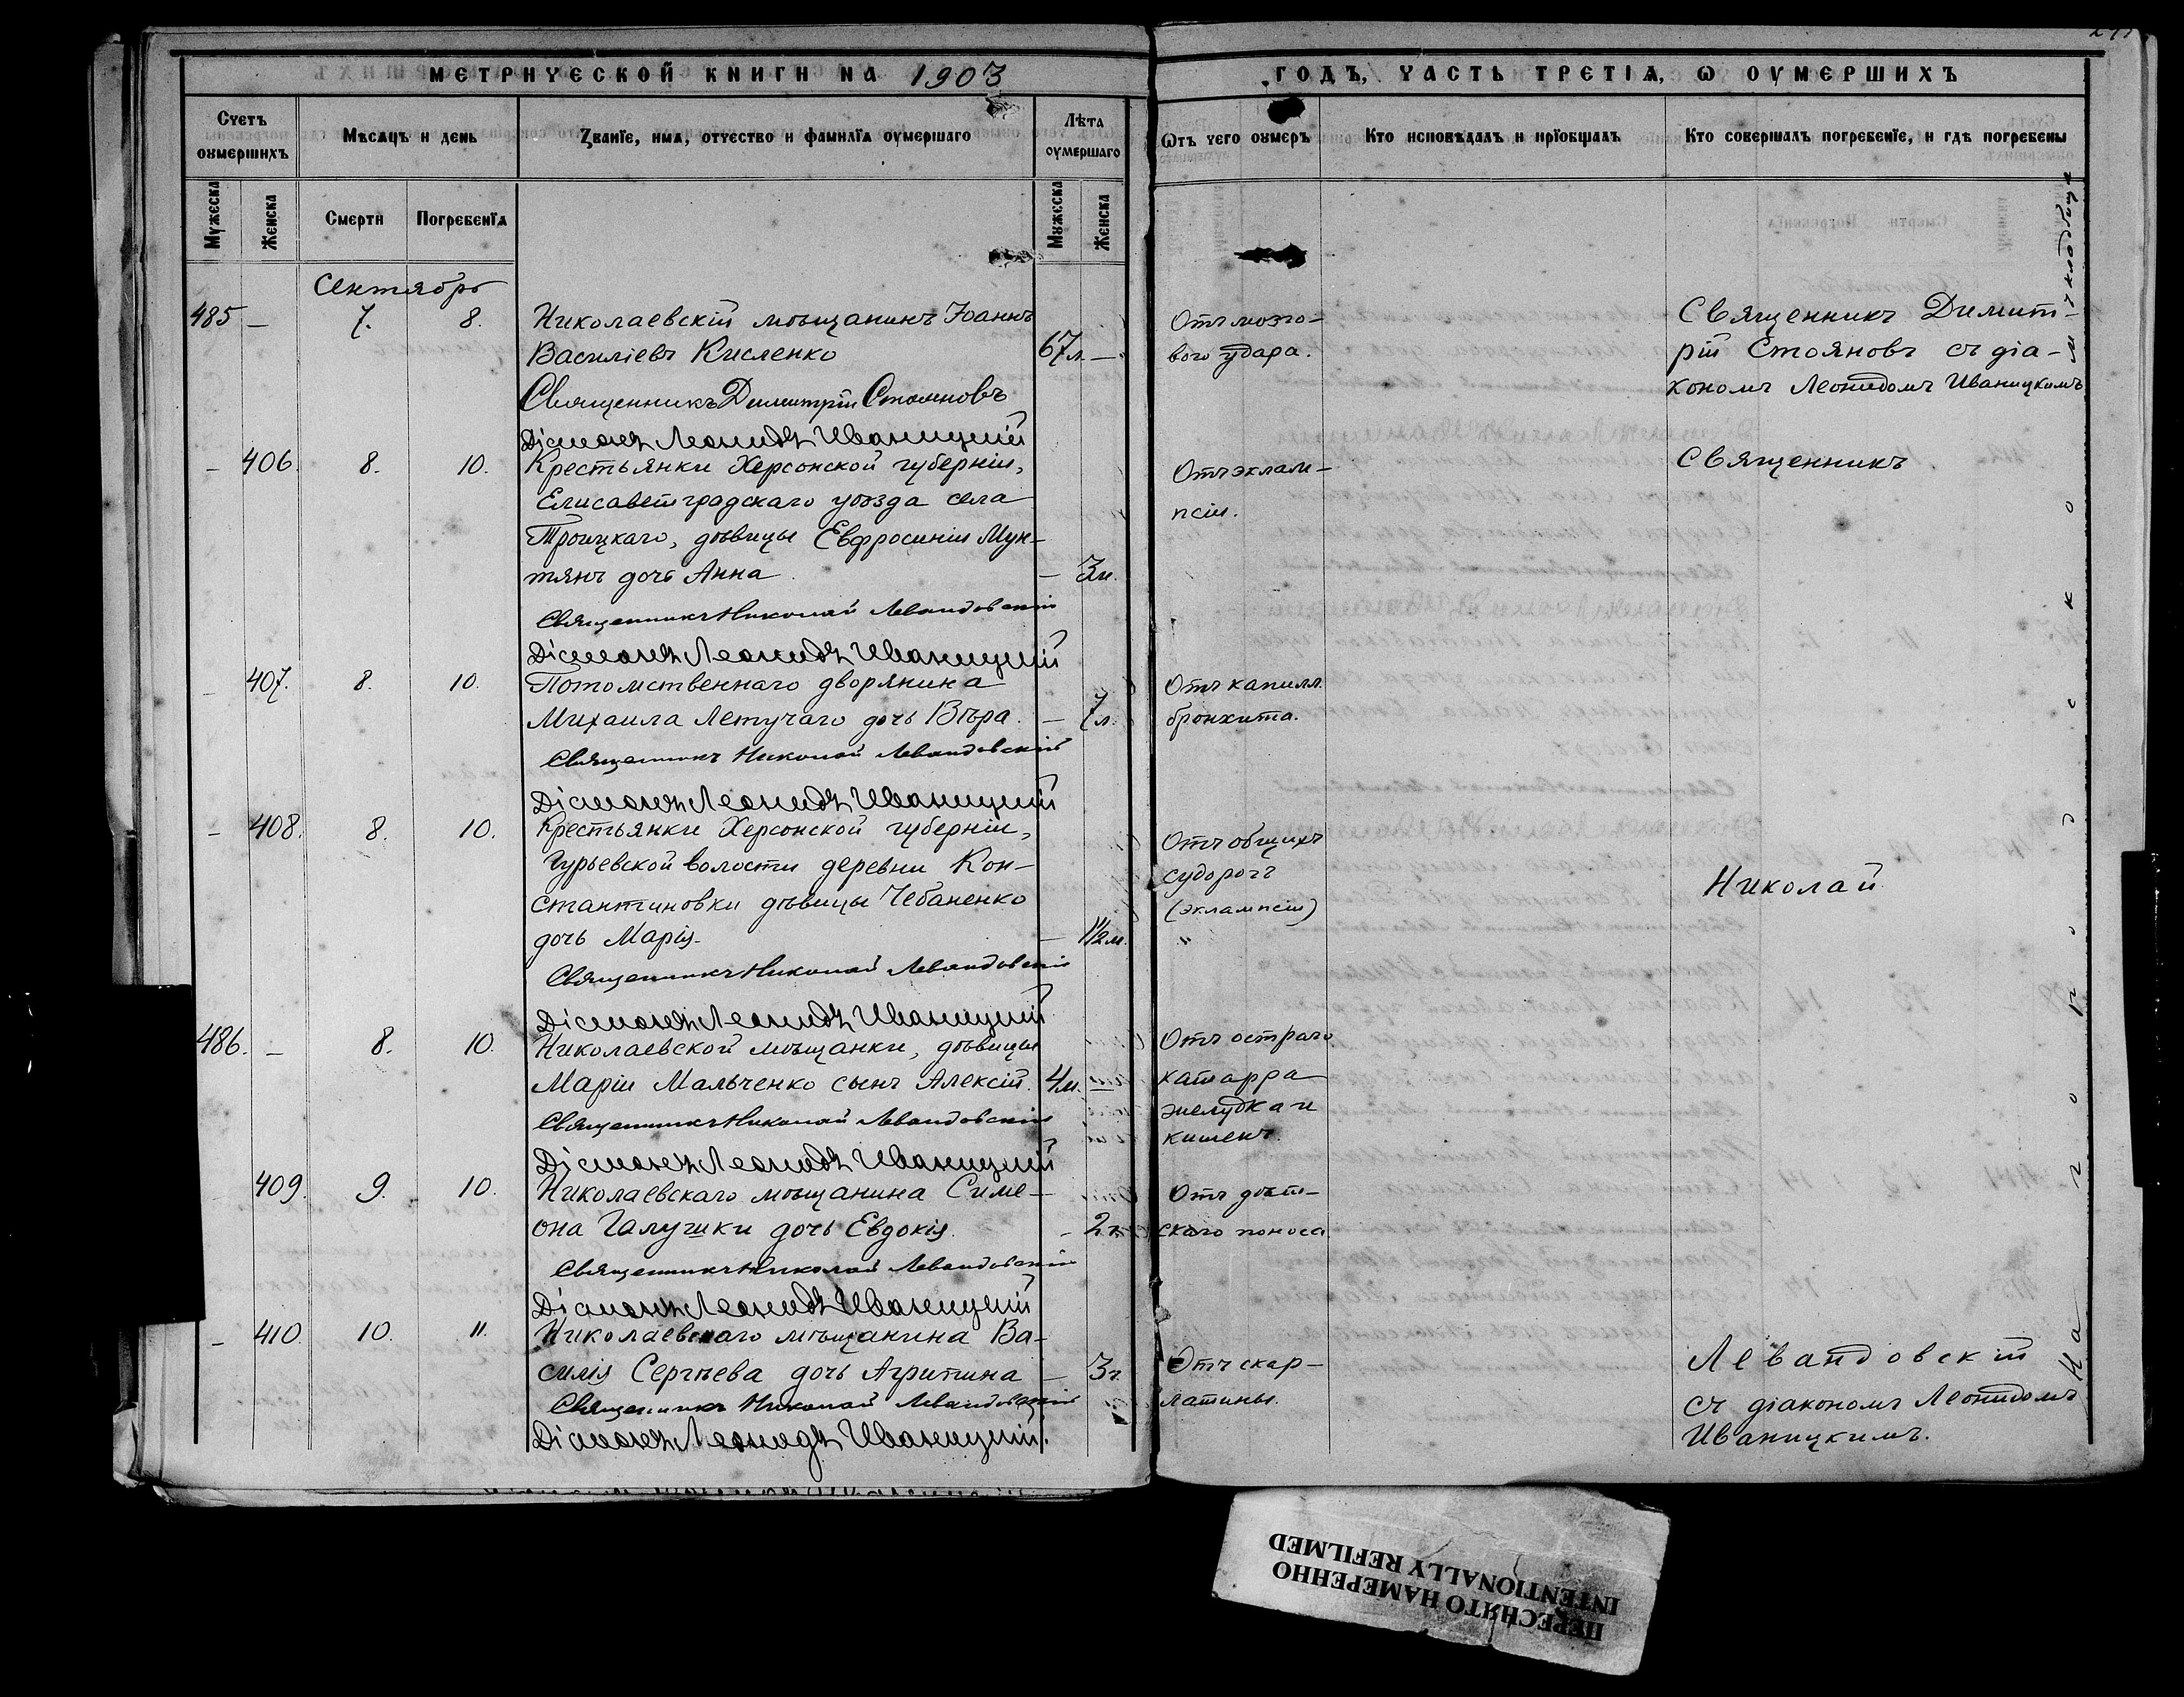 МЕТРИЧЕСКОЙ КНИГИ НА 1903
ГОДЪ, ЧАСТЬ ТРЕТІѦ, Ѡ ОУМЕРШИХЪ
Счетъ оумершихъ
Мѣсѧцъ и день
Званїе, имѧ, отчество и фамилїѧ оумершаго
Лѣта оумершаго
Ѿтъ чего оумеръ
Кто исповѣдалъ и прїобщалъ
Кто совершалъ погребенїе, и гдѣ погребены
Мужеска
Женска
Смерти
Погребенїѧ
Мужеска
Женска
Сентябрь
485 — 7. 8. Николаевскій мѣщанинъ Іоаннъ
Василіевъ Кисленко 67 л. —
Священникъ Димитрій Стояновъ
Діаконъ Леонидъ Иваницкій
Отъ мозго-
вого удара.
Священникъ Димит-
рій Стояновъ съ діа-
кономъ Леонидомъ Иваницкимъ
— 406. 8. 10. Крестьянки Херсонской губерніи,
Елисаветградскаго уѣзда села
Троицкаго, дѣвицы Евфросиніи Мун-
тянъ дочь Анна — 3 м.
Священникъ Николай Левандовскій
Діаконъ Леонидъ Иваницкій
Отъ эклам-
псіи.
Священникъ
— 407. 8. 10. Потомственнаго дворянина
Михаила Летучаго дочь Вѣра. — 7 л.
Священникъ Николай Левандовскій
Діаконъ Леонидъ Иваницкій
Отъ капилл.
бронхита.
— 408. 8. 10. Крестьянки Херсонской губерніи,
Гурьевской волости деревни Кон-
стантиновки дѣвицы Чебаненко
дочь Марія — 1½ м.
Священникъ Николай Левандовскій
Діаконъ Леонидъ Иваницкій
Отъ общихъ
судорогъ
(эклампсіи)
"
Николай
486. — 8. 10. Николаевской мѣщанки, дѣвицы
Маріи Мальченко сынъ Алексій. 4 м. —
Священникъ Николай Левандовскій
Діаконъ Леонидъ Иваницкій
Отъ остраго
катарра
желудка и
кишекъ.
409. 9. 10. Николаевскаго мѣщанина Симе-
она Галушки дочь Евдокія. — 2 г.
Священникъ Николай Левандовскій
Діаконъ Леонидъ Иваницкій
Отъ дѣт-
скаго поноса
— 410. 10. 11. Николаевскаго мѣщанина Ва-
силія Сергѣева дочь Агрипина — 3 г.
Священникъ Николай Левандовскій
Діаконъ Леонидъ Иваницкій.
Отъ скар-
латины.
Левандовскій
съ діакономъ Леонидомъ
Иваницкимъ.
На городскомъ кладбищѣ
ПЕРЕСНЯТО НАМЕРЕННО
INTENTIONALLY REFILMED